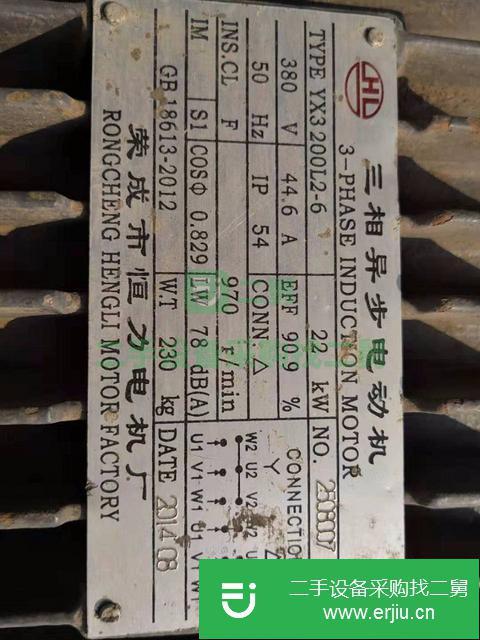 HL
三相异步电动机
3-PHASE INDUCTION MOTOR
TYPE YX3 200L2-6 22 kW NO.
380 V 44.6 A EFF 90.9 %
50 Hz IP 54 CONN. △
INS.CL F 970 r/min
IM S1 COSΦ 0.829 LW 78 dB(A)
GB 18613-2012 W.T 230 kg DATE 2014 08
CONNECTION
Y △
W2 U2 V2 W2
U1 V1 W1 U1 V1 W1
荣成市恒力电机厂
RONGCHENG HENGLI MOTOR FACTORY
二手设备采购找二舅
二手设备采购找二舅
www.erjiu.cn